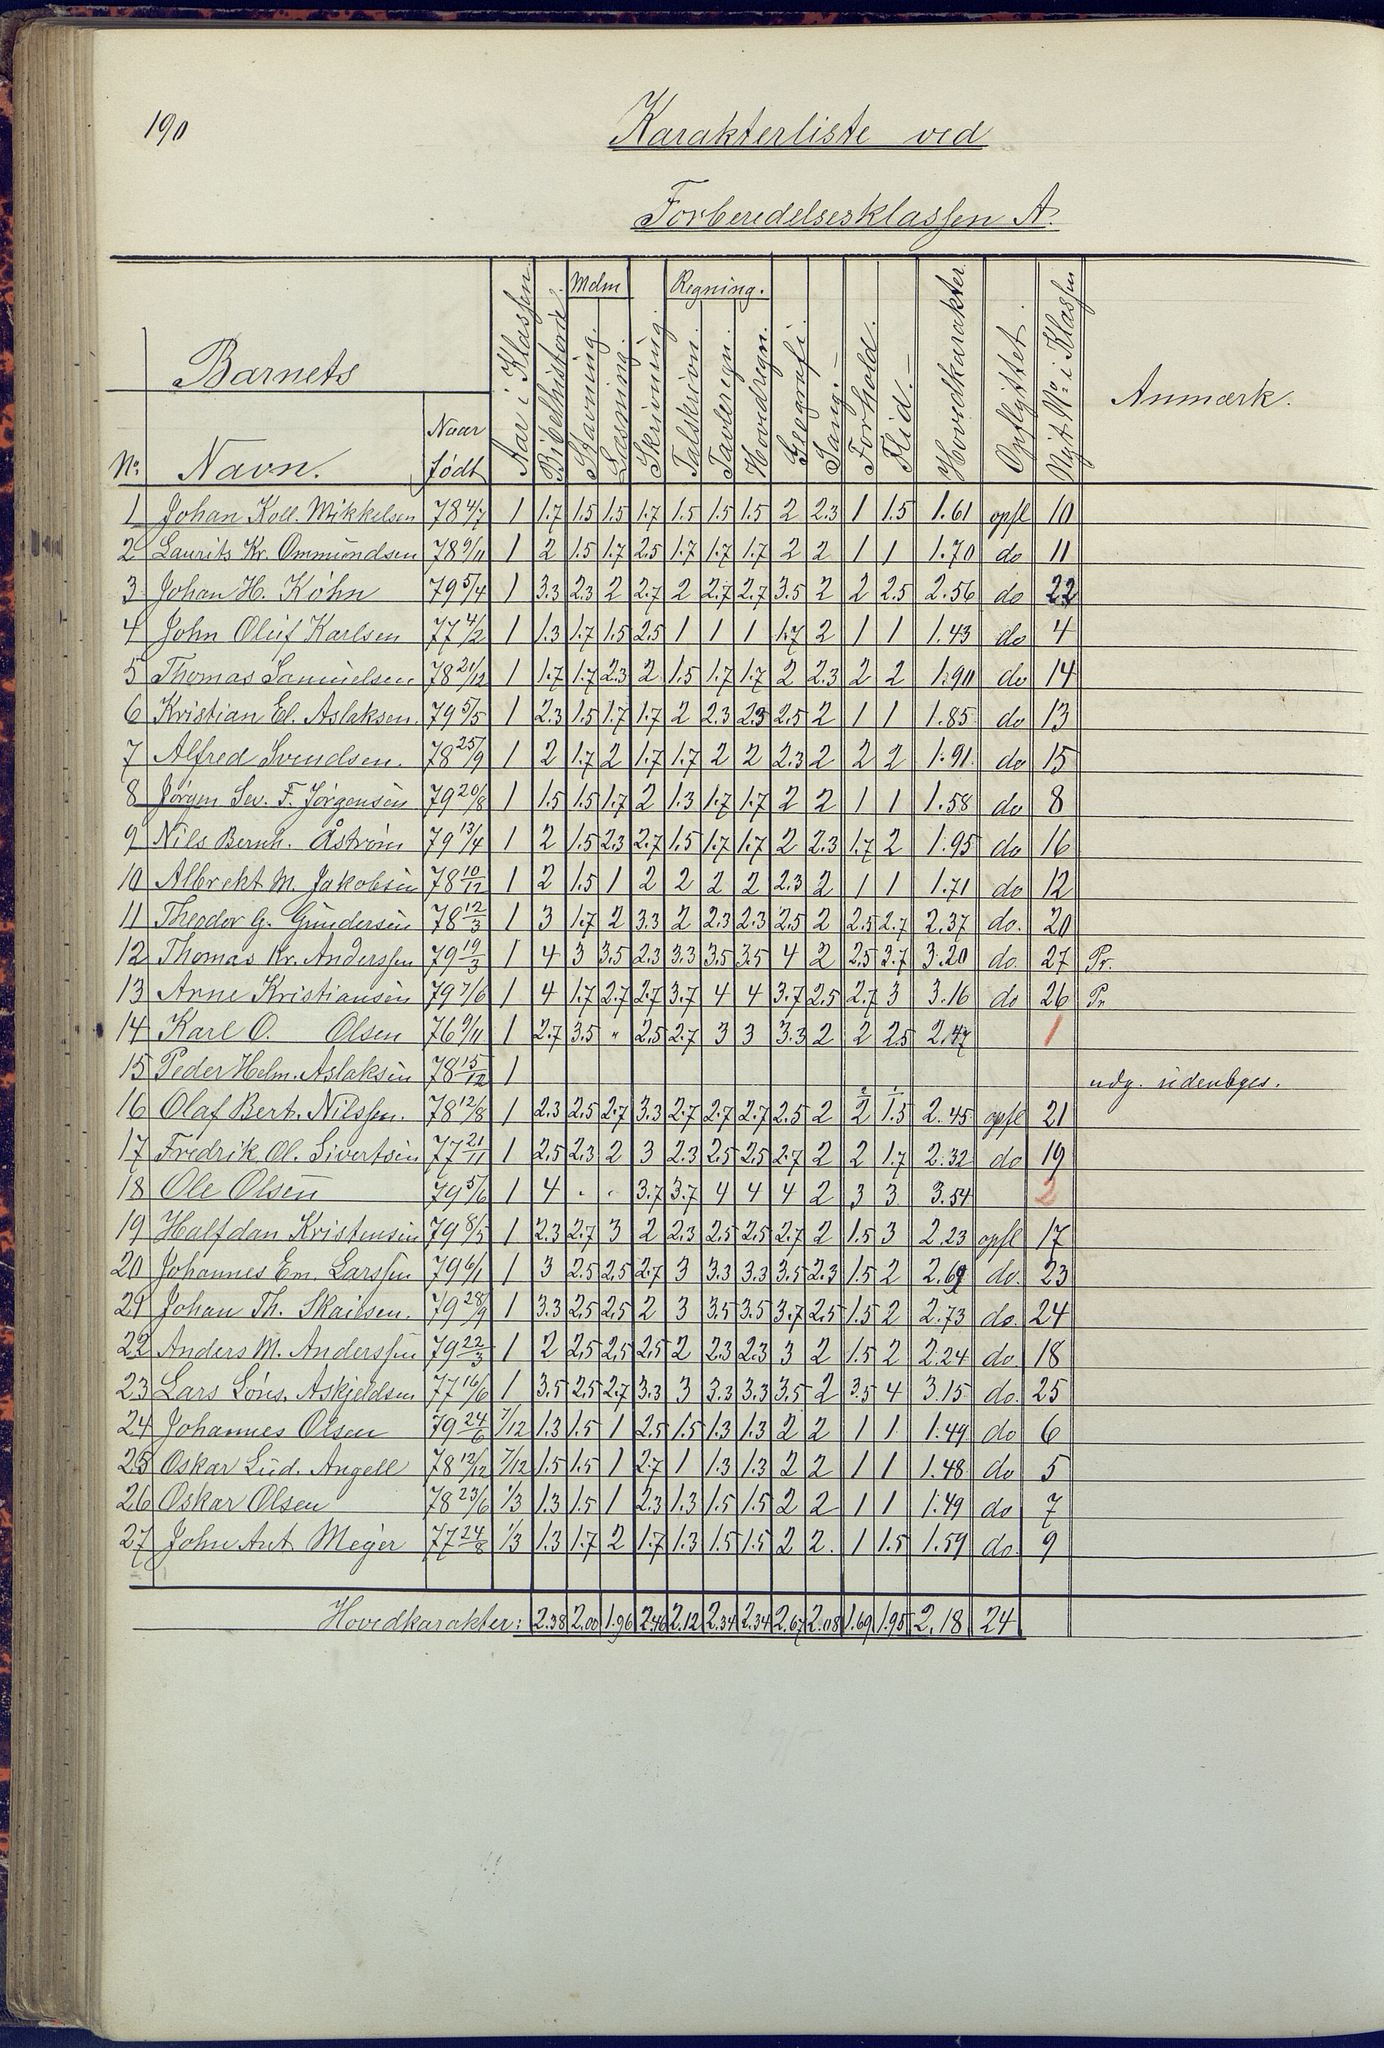 190
Karakterliste ved
Forberedelsesklassen A.
Barnets
No. Navn. Naar født Aar i Klassen. Bibelhistorie. Mdm Stavning. Læsning. Skrivning. Regning. Talskrivn. Tavleregn. Hovedregn. Geografi. Sang. Forhold. Flid. Hovedkarakter. Opflyttet. Nyt No. i Klassen Anmærk.
1 Johan Koll. Mikkelsen 78 4/7 1 1.7 1.5 1.5 1.7 1.5 1.5 1.5 2 2.3 1 1.5 1.61 opfl 10
2 Laurits Kr. Ommundsen 78 9/11 1 2 1.5 1.7 2.5 1.7 1.7 1.7 2 2 1 1 1.70 do 11
3 Johan H. Køhn 79 5/4 1 3.3 2.3 2 2.7 2 2.7 2.7 3.5 2 2 2.5 2.56 do 22
4 John Oluf Karlsen 77 4/2 1 1.3 1.7 1.5 2.5 1 1 1 1.7 2 1 1 1.43 do 4
5 Thomas Samuelsen 78 21/12 1 1.7 1.7 2.3 2 1.5 1.7 1.7 2 2.3 2 2 1.90 do 14
6 Kristian El. Aslaksen. 79 5/5 1 2.3 1.5 1.7 1.7 2 2.3 2.3 2.5 2 1 1 1.85 do 13
7 Alfred Svendsen. 78 25/9 1 2 1.7 2 1.7 1.7 2 2 2.3 2 2 2 1.91 do 15
8 Jørgen Sev. F. Jørgensen 79 20/8 1 1.5 1.5 1.7 2 1.3 1.7 1.7 2 2 1 1 1.58 do 8
9 Nils Bernh. Åstrøm 79 13/4 1 2 1.5 2.3 2.7 1.5 1.7 1.7 2 2.3 1.7 2 1.95 do 16
10 Albrekt M. Jakobsen 78 10/12 1 2 1.5 1 2 2 2 2 2.3 2 1 1 1.71 do 12
11 Theodor G. Gundersen 78 12/3 1 3 1.7 2 3.3 2 2.3 2.3 2.5 2 2.5 2.7 2.37 do. 20
12 Thomas Kr. Anderssen 79 19/3 1 4 3 3.5 2.3 3.3 3.5 3.5 4 2 2.5 3.7 3.20 do. 27 Pr.
13 Arne Kristiansen 79 7/6 1 4 1.7 2.7 2.7 3.7 4 4 3.7 2.5 2.7 3 3.16 do 26 Pr
14 Karl O. Olsen 76 9/11 1 2.7 3.5 " 2.5 2.7 3 3 3.3 2 2 2.5 2.47 1
15 Peder Helm. Aslaksen 78 15/12 1 udg. udenbges.
16 Olaf Bert. Nilssen. 78 12/8 1 2.3 2.5 2.7 3.3 2.7 2.7 2.7 2.5 2 2 2 1 1.5 2.45 opfl 21
17 Fredrik Ol. Sivertsen 77 21/11 1 2.5 2.3 2 3 2.3 2.5 2.5 2.7 2 2 1.7 2.32 do 19
18 Ole Olsen 79 5/6 1 4 " " 3.7 3.7 4 4 4 2 3 3 3.54 2
19 Halfdan Kristensen 79 8/5 1 2.3 2.7 3 2 2.3 2.5 2.5 2.7 2 1.5 3 2.23 opfl 17
20 Johannes Em. Larssen 79 6/1 1 3 2.5 2.5 2.7 3 3.3 3.3 3.5 2.3 1.5 2 2.69 do. 23
21 Johan Th. Skailsen. 79 28/9 1 3.3 2.5 2.5 2 3 3.5 3.5 3.7 2.5 1.5 2 2.73 do. 24
22 Anders M. Anderssen 79 22/3 1 2 2.5 2.5 2.5 2 2.3 2.3 3 2 1.5 2 2.24 do 18
23 Lars Løns. Askjeldsen 77 16/6 1 3.5 2.5 2.7 3.3 3 3.3 3.3 3.5 2 3.5 4 3.15 do. 25
24 Johannes Olsen 79 24/6 7/12 1.3 1.5 1 2.5 1.5 1.3 1.3 2 2 1 1 1.49 do 6
25 Oskar Lud. Angell 78 12/12 7/12 1.5 1.5 1 2.7 1 1.3 1.3 2 2 1 1 1.48 do 5
26 Oskar Olsen 78 23/6 1/3 1.3 1.5 1 2.3 1.3 1.5 1.5 2 2 1 1 1.49 do 7
27 John Ant Meyer 77 24/8 1/3 1.3 1.7 2 1.7 1.3 1.5 1.5 2 2. 1 1.5 1.59 do. 9
Hovedkarakter: 2.38 2.00 1.96 2.46 2.12 2.34 2.34 2.67 2.08 1.69 1.95 2.18 24